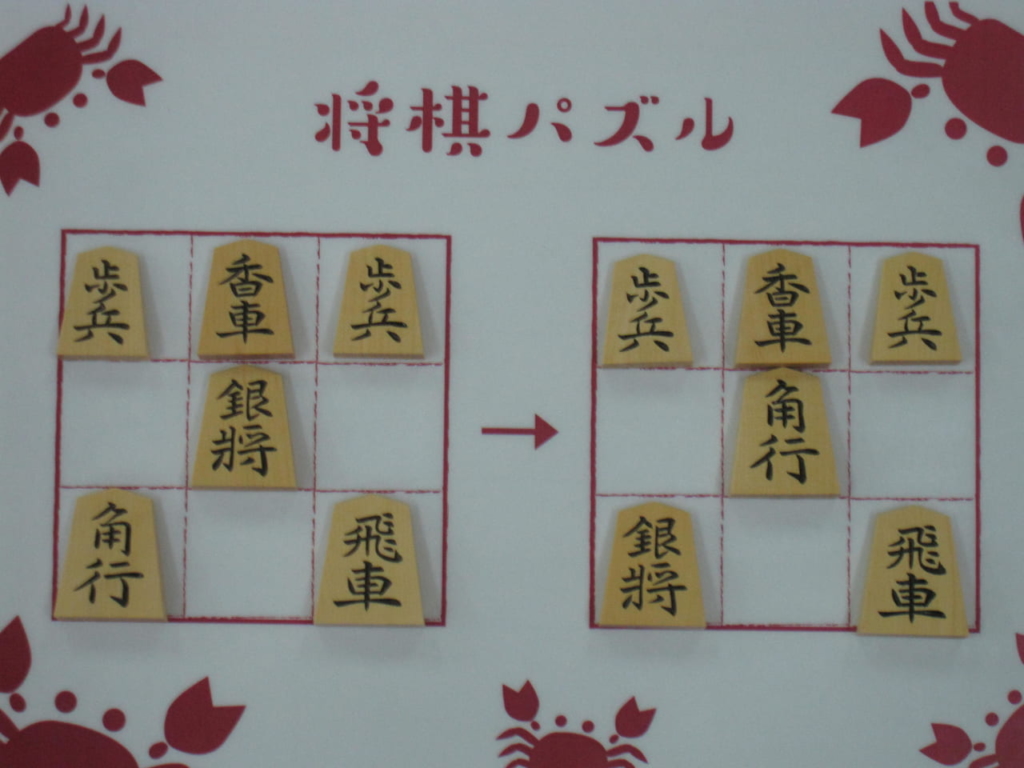 将棋パズル
歩兵 香車 歩兵
銀將
角行 飛車
歩兵 香車 歩兵
角行
銀將 飛車